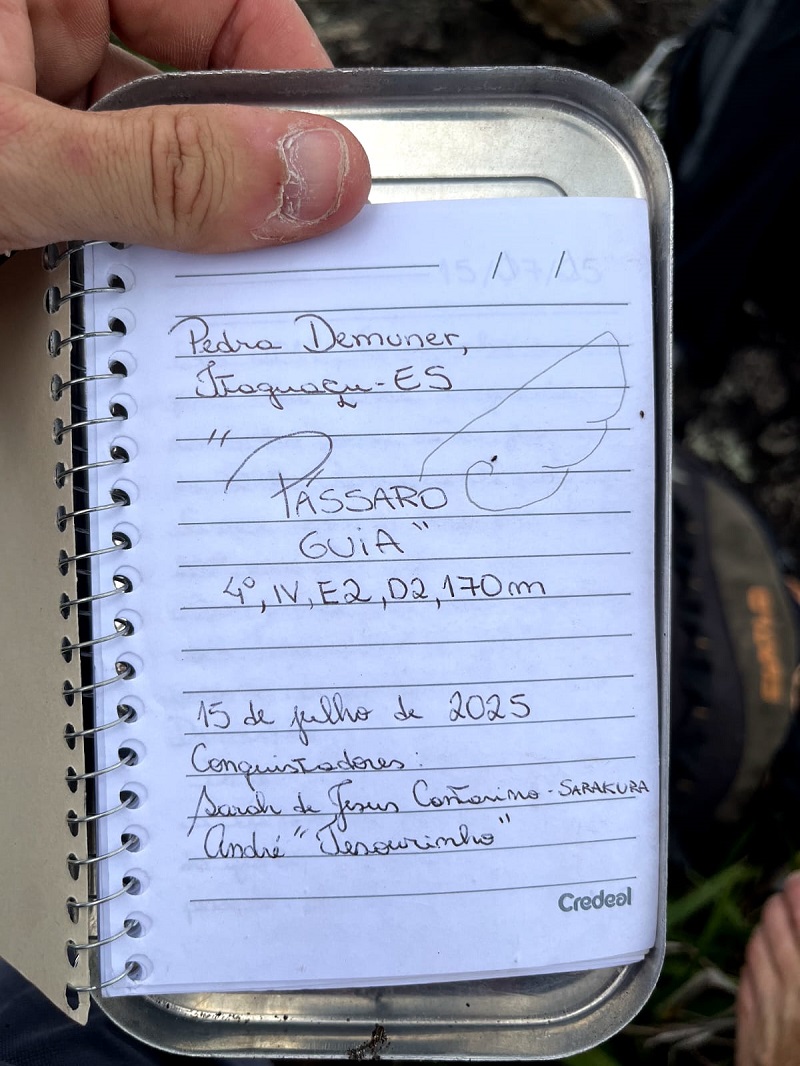 / /
Pedra Demuner,
Itaguaçu-ES
"PÁSSARO
GUIA"
4º, IV, E2, D2, 170m
15 de julho de 2025
Conquistadores:
Sarah de Jesus Contarino - SARAKURA
André "Tesourinho"
Credeal